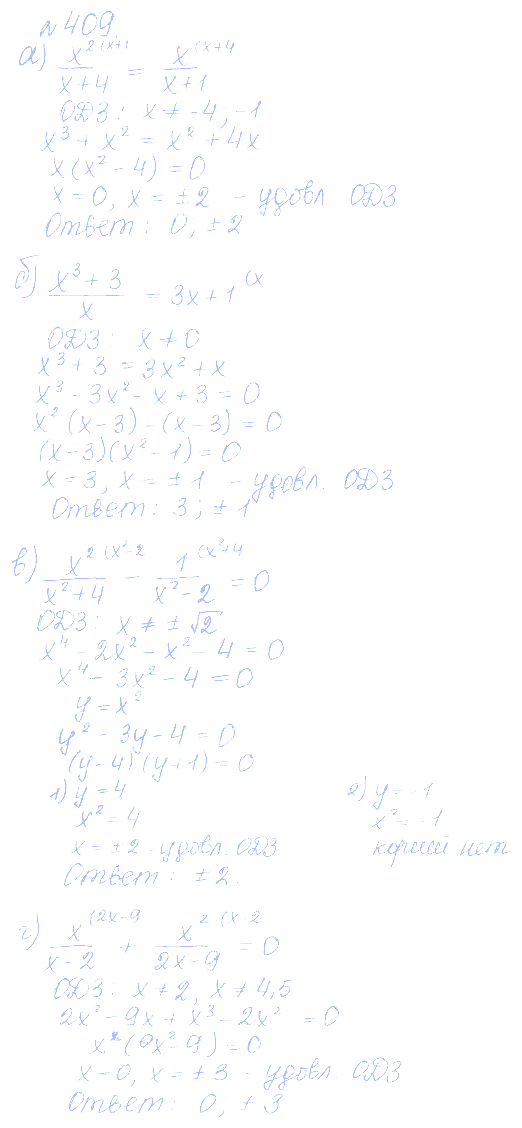 № 409.
а) x^2 (x+1 / x+4 = x (x+4 / x+1
ОДЗ: x ≠ -4; -1
x³ + x² = x² + 4x
x(x² - 4) = 0
x = 0, x = ±2 - удовл. ОДЗ
Ответ: 0; ±2
б) x³ + 3 / x = 3x + 1 (x
ОДЗ: x ≠ 0
x³ + 3 = 3x² + x
x³ - 3x² - x + 3 = 0
x² (x - 3) - (x - 3) = 0
(x - 3)(x² - 1) = 0
x = 3, x = ±1 - удовл. ОДЗ
Ответ: 3; ±1
в) x^2 (x²-2 / x² + 4 - 1 (x²+4 / x² - 2 = 0
ОДЗ: x ≠ ±√2
x⁴ - 2x² - x² - 4 = 0
x⁴ - 3x² - 4 = 0
y = x²
y² - 3y - 4 = 0
(y - 4)(y + 1) = 0
1) y = 4
x² = 4
x = ±2 - удовл. ОДЗ
2) y = -1
x² = -1
корней нет
Ответ: ±2.
г) x (2x-9 / x - 2 + x^2 (x-2 / 2x - 9 = 0
ОДЗ: x ≠ 2, x ≠ 4,5
2x² - 9x + x³ - 2x² = 0
x = 0, x = ±3 - удовл. ОДЗ
Ответ: 0; ±3